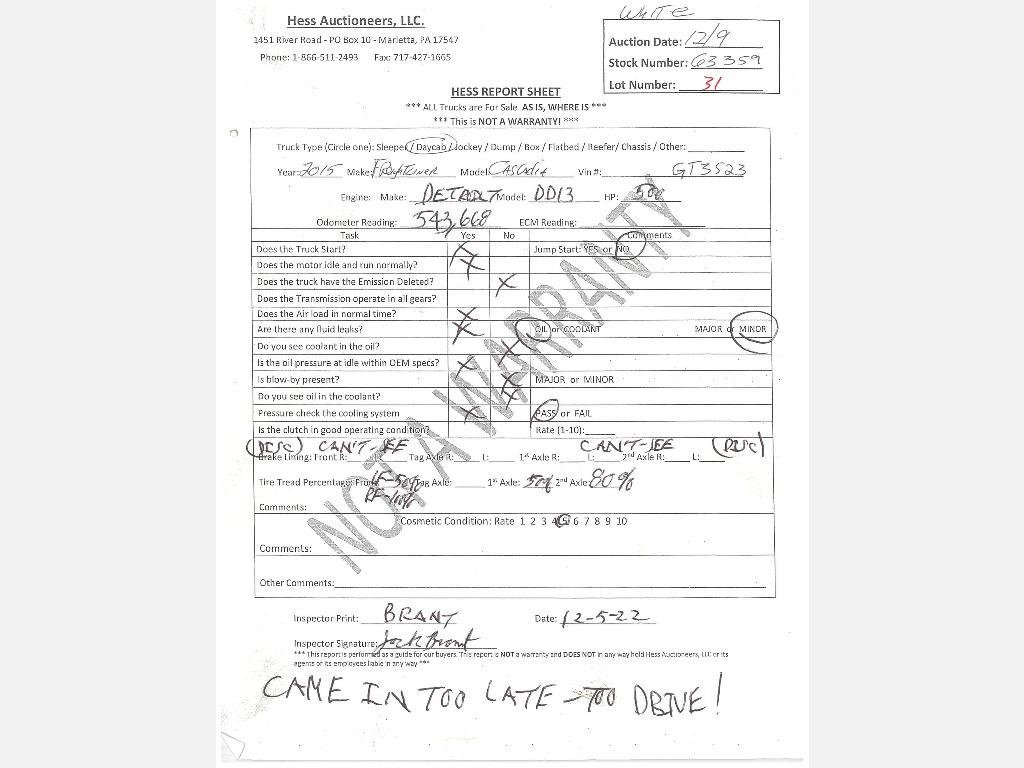 WHITE
Hess Auctioneers, LLC.
1451 River Road - PO Box 10 - Marietta, PA 17547
Phone: 1-866-511-2493 Fax: 717-427-1665
Auction Date: 12/9
Stock Number: 63359
Lot Number: 31
HESS REPORT SHEET
*** ALL Trucks are For Sale AS IS, WHERE IS ***
*** This is NOT A WARRANTY! ***
Truck Type (Circle one): Sleeper / Daycab / Jockey / Dump / Box / Flatbed / Reefer/ Chassis / Other:
Year: 2015 Make: Model: CASCADIA Vin #: GT3523
Engine: Make: DETROIT Model: DD13 HP: 500
Odometer Reading: 543,668 ECM Reading:
Task Yes No Comments
Does the Truck Start? X Jump Start: YES or NO
Does the motor idle and run normally? X
Does the truck have the Emission Deleted? X
Does the Transmission operate in all gears?
Does the Air load in normal time? X
Are there any fluid leaks? X OIL or COOLANT MAJOR or MINOR
Do you see coolant in the oil? X
Is the oil pressure at idle within OEM specs? X
Is blow-by present? X MAJOR or MINOR
Do you see oil in the coolant? X
Pressure check the cooling system X PASS or FAIL
Is the clutch in good operating condition? Rate (1-10):
(DISC) CAN'T-SEE CAN'T-SEE (DISC)
Brake Lining: Front R: L: Tag Axle R: L: 1st Axle R: L: 2nd Axle R: L:
Tire Tread Percentage: Front LF-50% Tag Axle: 1st Axle: 50% 2nd Axle: 80%
RF-100%
Comments:
Cosmetic Condition: Rate 1 2 3 4 5 6 7 8 9 10
Comments:
Other Comments:
NOT A WARRANTY
Inspector Print: BRANT Date: 12-5-22
Inspector Signature: Jack Brant
*** This report is performed as a guide for our buyers. This report is NOT a warranty and DOES NOT in any way hold Hess Auctioneers, LLC or its
agents or its employees liable in any way ***
CAME IN TOO LATE - TO DRIVE!